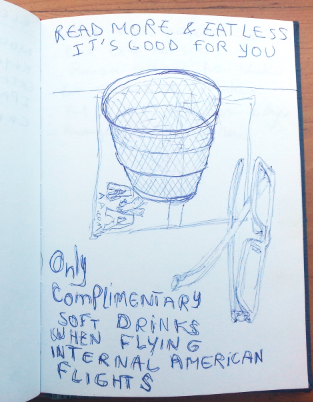 READ MORE & EAT LESS
IT'S GOOD FOR YOU
Only
COMPLIMENTARY
SOFT DRINKS
WHEN FLYING
INTERNAL AMERICAN
FLIGHTS